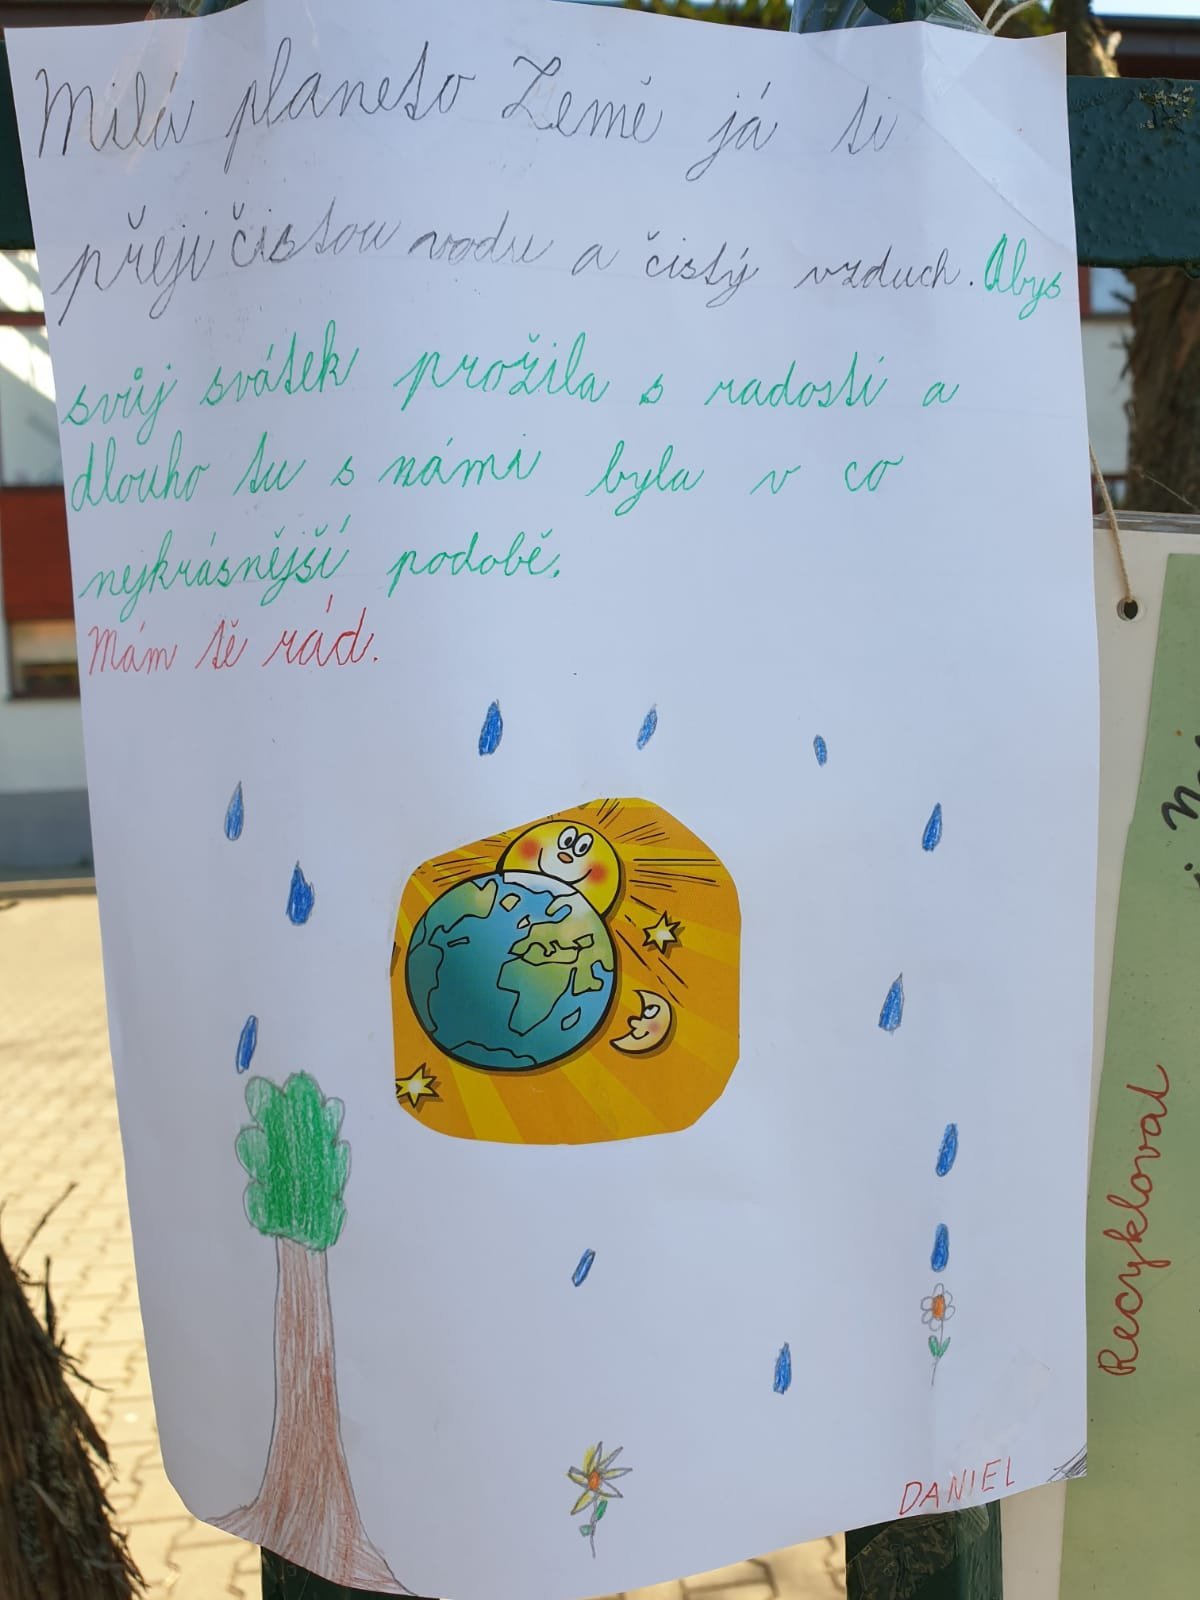 Milá planeto Země já ti
přeji čistou vodu a čistý vzduch. Abys
svůj svátek prožila s radostí a
dlouho tu s námi byla v co
nejkrásnější podobě.
Mám tě rád.
DANIEL
Recyklovat